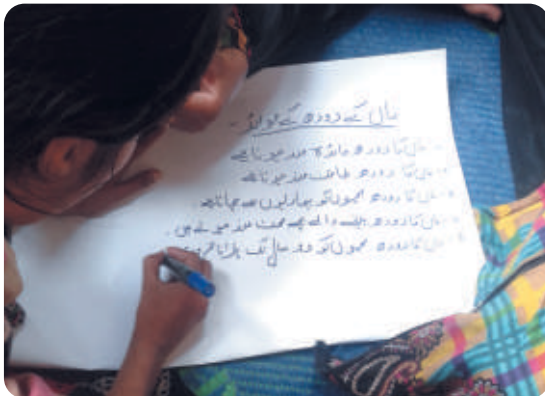 ماں کے دودھ کے فوائد -
ماں کا دودھ فائدہ مند ہوتا ہے
ماں کا دودھ طاقت مند ہوتا ہے
ماں کا دودھ بچوں کو بیماریوں سے بچاتا ہے
ماں کا دودھ پینے والے بچے صحت مند ہوتے ہیں -
ماں کا دودھ بچوں کو دو سال تک پلانا